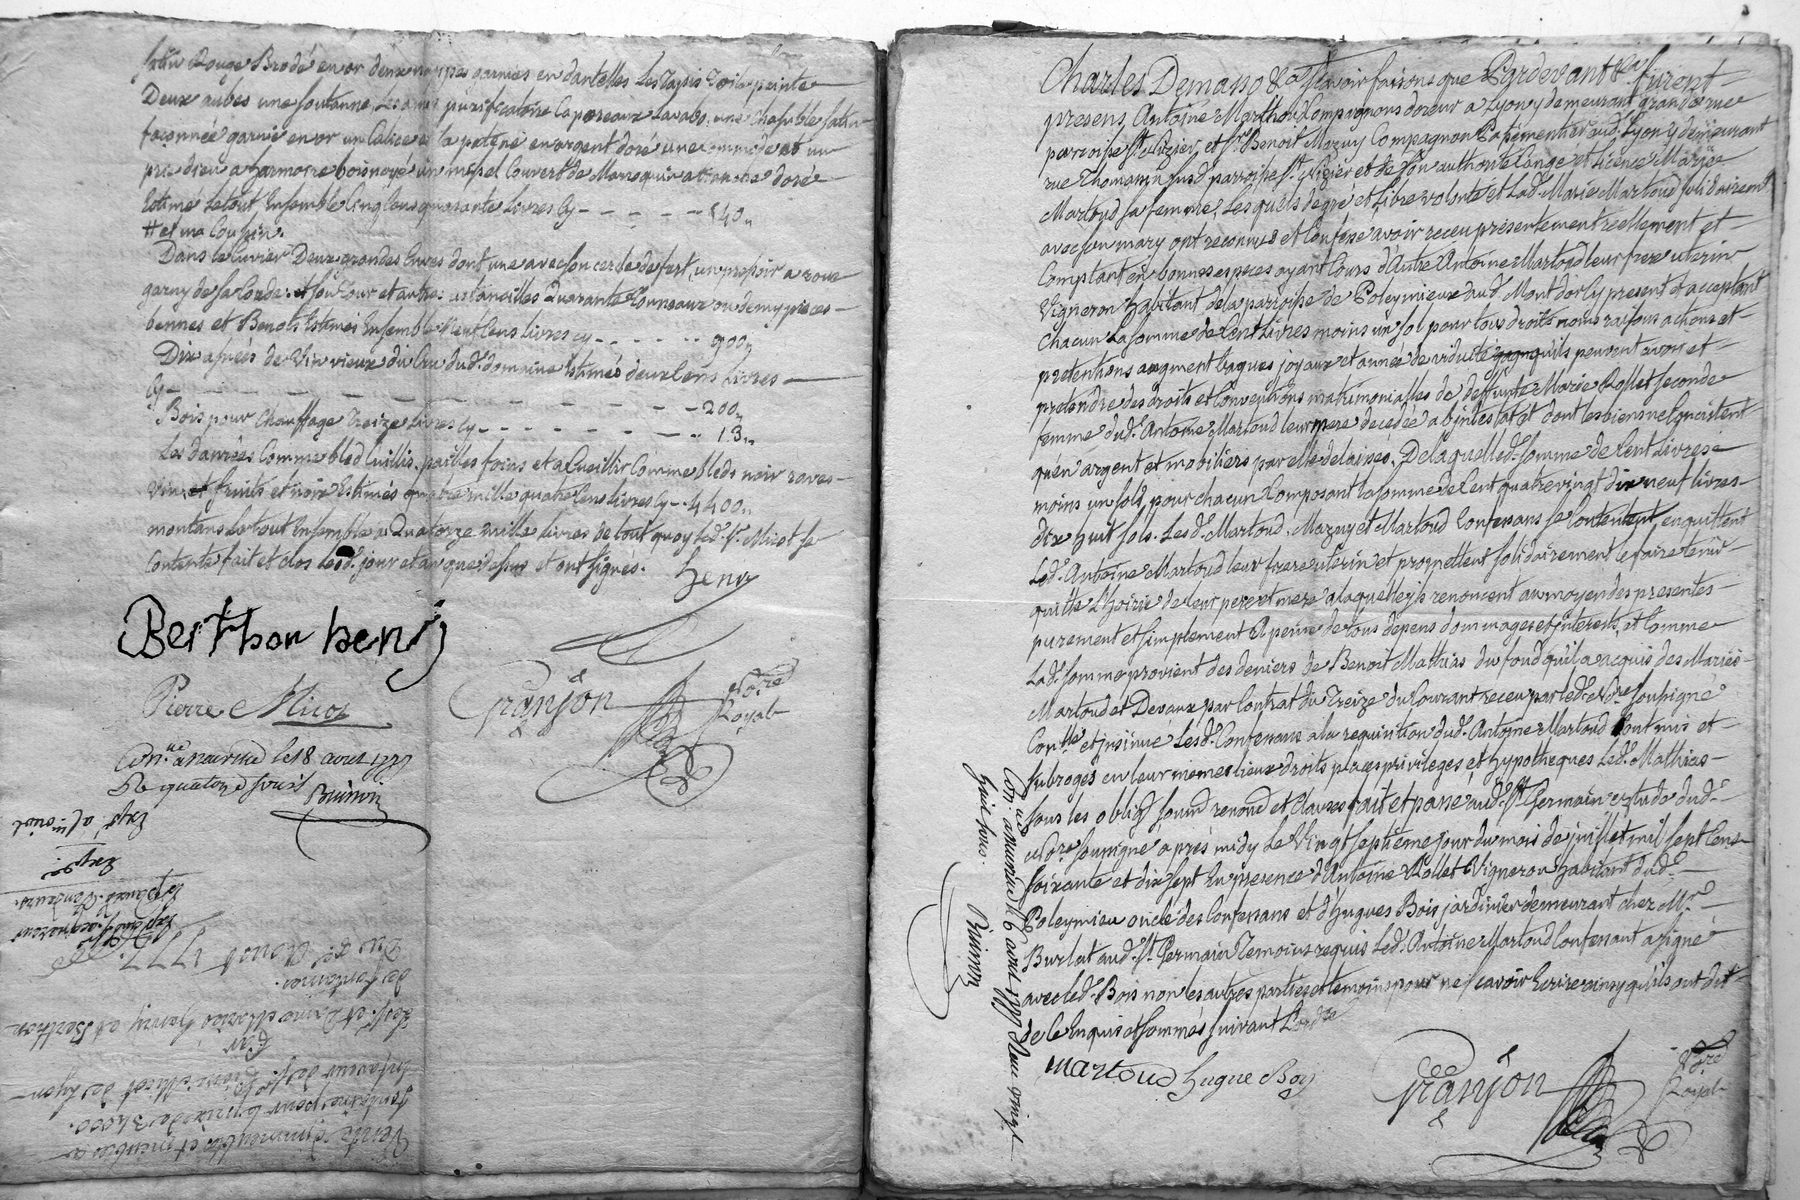 satin Rouge Brodé en or deux nappes garnies en dantelles Les Tapis Toile peinte
Deux aubes une soutanne Les amis purificatoire Corporeaux Lavabo, une Chasuble satin
façonnée garnie en or un Calice & la patene en argent doré une commode et un
prie dieu a harmoire bois noyé un missel Couvert de Marroquin a tranche doré
Estimé Le tout Ensemble Cinq Cens quarante Livres Cy - - - - - 540.,
# et un Coussin.
Dans le Cuvier Deux grandes Cuves dont une avec son cercle de fert, un pressoir a roue
garny de sa Corde: et son Tour et autres ustancilles Quarante Tonneaux ou demy pieces
bennes et Benots Estimés Ensemble Neuf Cens livres cy - - - - - - 900.,
Dix asnées de Vin vieux du Cru dud. domaine Estimés deux Cens Livres
Cy - - - - - - - - - - 200.,
Bois pour Chauffage Treize Livres Cy - - - - - - - 13.,
Les danrées Comme bled Cuillis, pailles foins et a Cueillir Comme bleds noir raves
Vin et fruits et noix Estimés quatre mille quatre Cens livres Cy - 4400.,
montans Le tout Ensemble a Quatorze mille livres de tout quoy led. Sr. Micot se
Contente fait et clos lesd. jour et an que dessus et ont signés.
heny
Berthon heny
Pierre Micot
Granjon
No.re Royal
Con.lé a neuville le 18 aout 1777
Reçu quatorze sous
Buisson
Expé.
Du 4e. Aout 1777.
de fontaines.
Sr. et Dame Marie henry et Berthon
Par
En faveur de Sr. Pierre Micot de Lyon
fontaines pour le prix de 34000.
Vente d'immeubles et meubles a
Charles Demaso &a. Scavoir faisons que Pardevant &a. furent
presens Antoine Marthoud Compagnons doreur a Lyon y demeurant grande rue
paroisse St. Nizier, et Sr. Benoit Mazuy Compagnon Passementier aud. Lyon y demeurant
rue Thomassin susd. paroisse St. Nizier et de Son authorité Congé et licence Marie
Martoud sa femme, Lesquels de gré et libre volonté et Lad. Marie Martoud solidairement
avec son mary ont reconnus et Confessé avoir receu présentement reellement et
Comptant en bonnes especes ayant Cours d'Autre Antoine Martoud leur frere uterin
Vigneron habitant de la paroisse de Poleymieux aud. Mont dor cy present et acceptant
Chacun La Somme de Cent Livres moins un sol pour tous droits noms raisons actions et
pretentions augment bagues joyaux et année de viduité qu'ils peuvent avoir et
pretendre des droits et Conventions matrimonialles de deffunte Marie Pollet seconde
femme dud. Antoine Martoud leur mere decedée ab intestat et dont les biens ne Consistent
qu'en argent et mobiliers par elle delaissés, De laquelle d. somme de Cent Livres
moins un sols, pour chacun Composant la somme de Cent quatre vingt dix neuf livres
dix huit sols, Lesd. Martoud, Mazuy et Martoud Confessans se Contentent, en quittent
Led. Antoine Martoud leur frere uterin et promettent solidairement le faire tenir
quitte L'Hoirie de leur pere et mere a laquelle ils renoncent au moyen des presentes
purement et simplement A peine de tous depens dommages et interests, et Comme
Lad. somme provient des deniers de Benoit Mathias du fond qu'il a acquis des Mariés
Martoud et Devaux par Contrat du Treize du Courant receu par led. Nore. soussigné
Con.lle et insinué Lesd. Confessans a la requisition dud. Antoine Martoud Sont mis et
subrogés en leur memes lieux droits places privileges et hypotheques Led. Mathias
sous les oblig. soum. renonc. et Clauses fait et passé aud. St. Germain estude dud.
Nore. soussigné après midy le Vingt septième jour du mois de juillet mil sept cens
soixante et dix sept En presence d'Antoine Pollet Vigneron habitant dud.
Poleymieu oncle des Confessans et d'hugues Bois jardinier demeurant chez Mr.
Burlat aud. St. Germain Temoins requis Led. Antoine Martoud Confessant a signé
avec led. Bois non les autres parties et temoins pour ne scavoir Ecrire ainsy qu'ils ont dit
de Ce Enquis et sommés suivant L'ord.ce
Martoud hugue Boy
Granjon
No.re Royal
Con.lé a neuville le 6 aout 1777 Reçu vingt
huit sous. Buisson